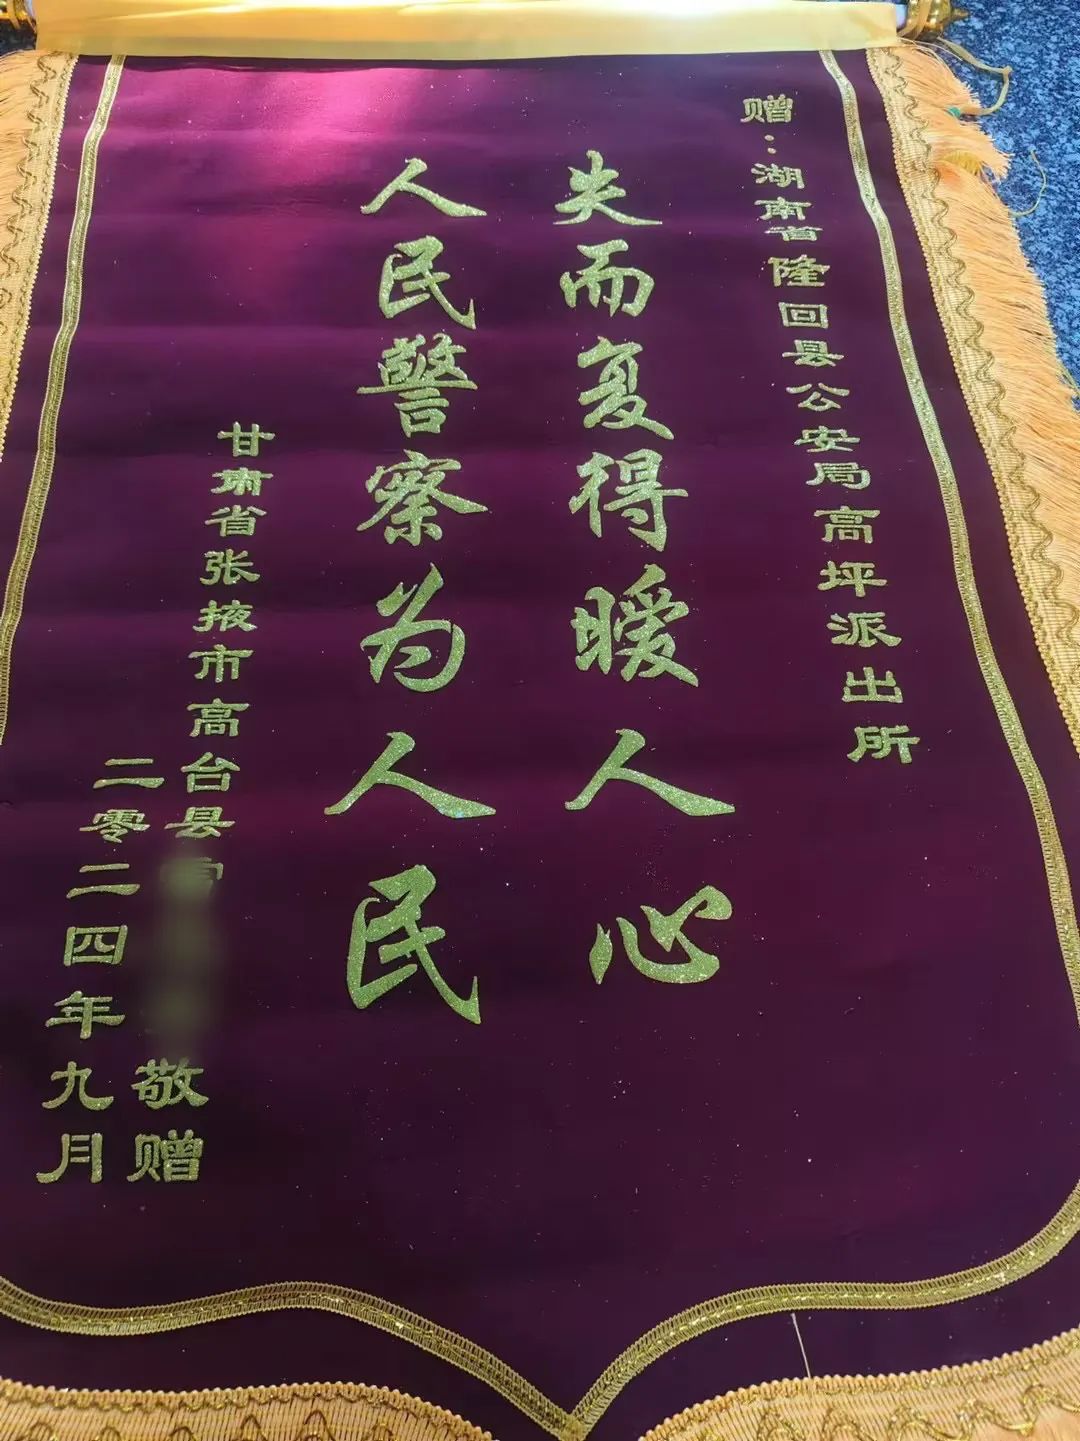 赠：湖南省隆回县公安局高坪派出所
失而复得暖人心
人民警察为人民
甘肃省张掖市高台县
敬赠
二零二四年九月